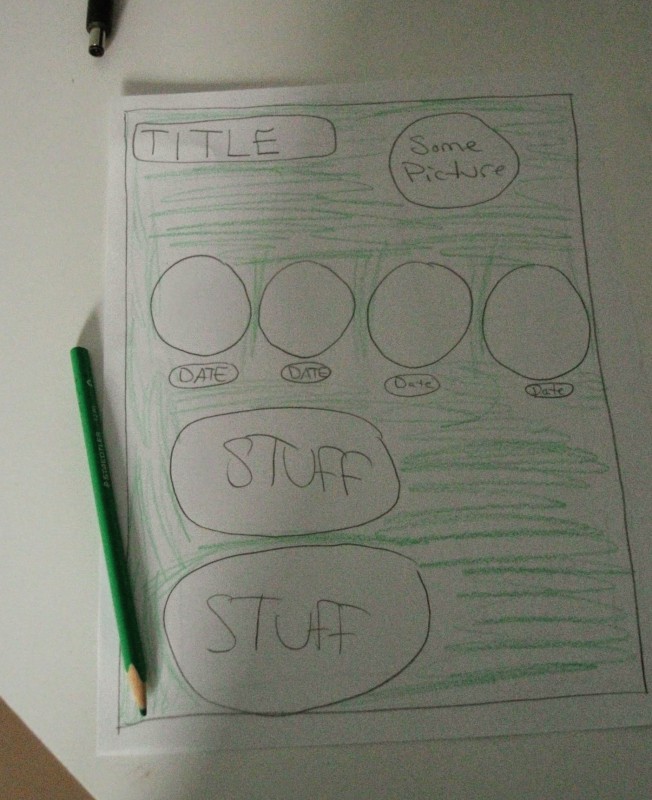 TITLE
Some
Picture
DATE
DATE
Date
Date
STUFF
STUFF
STAEDTLER